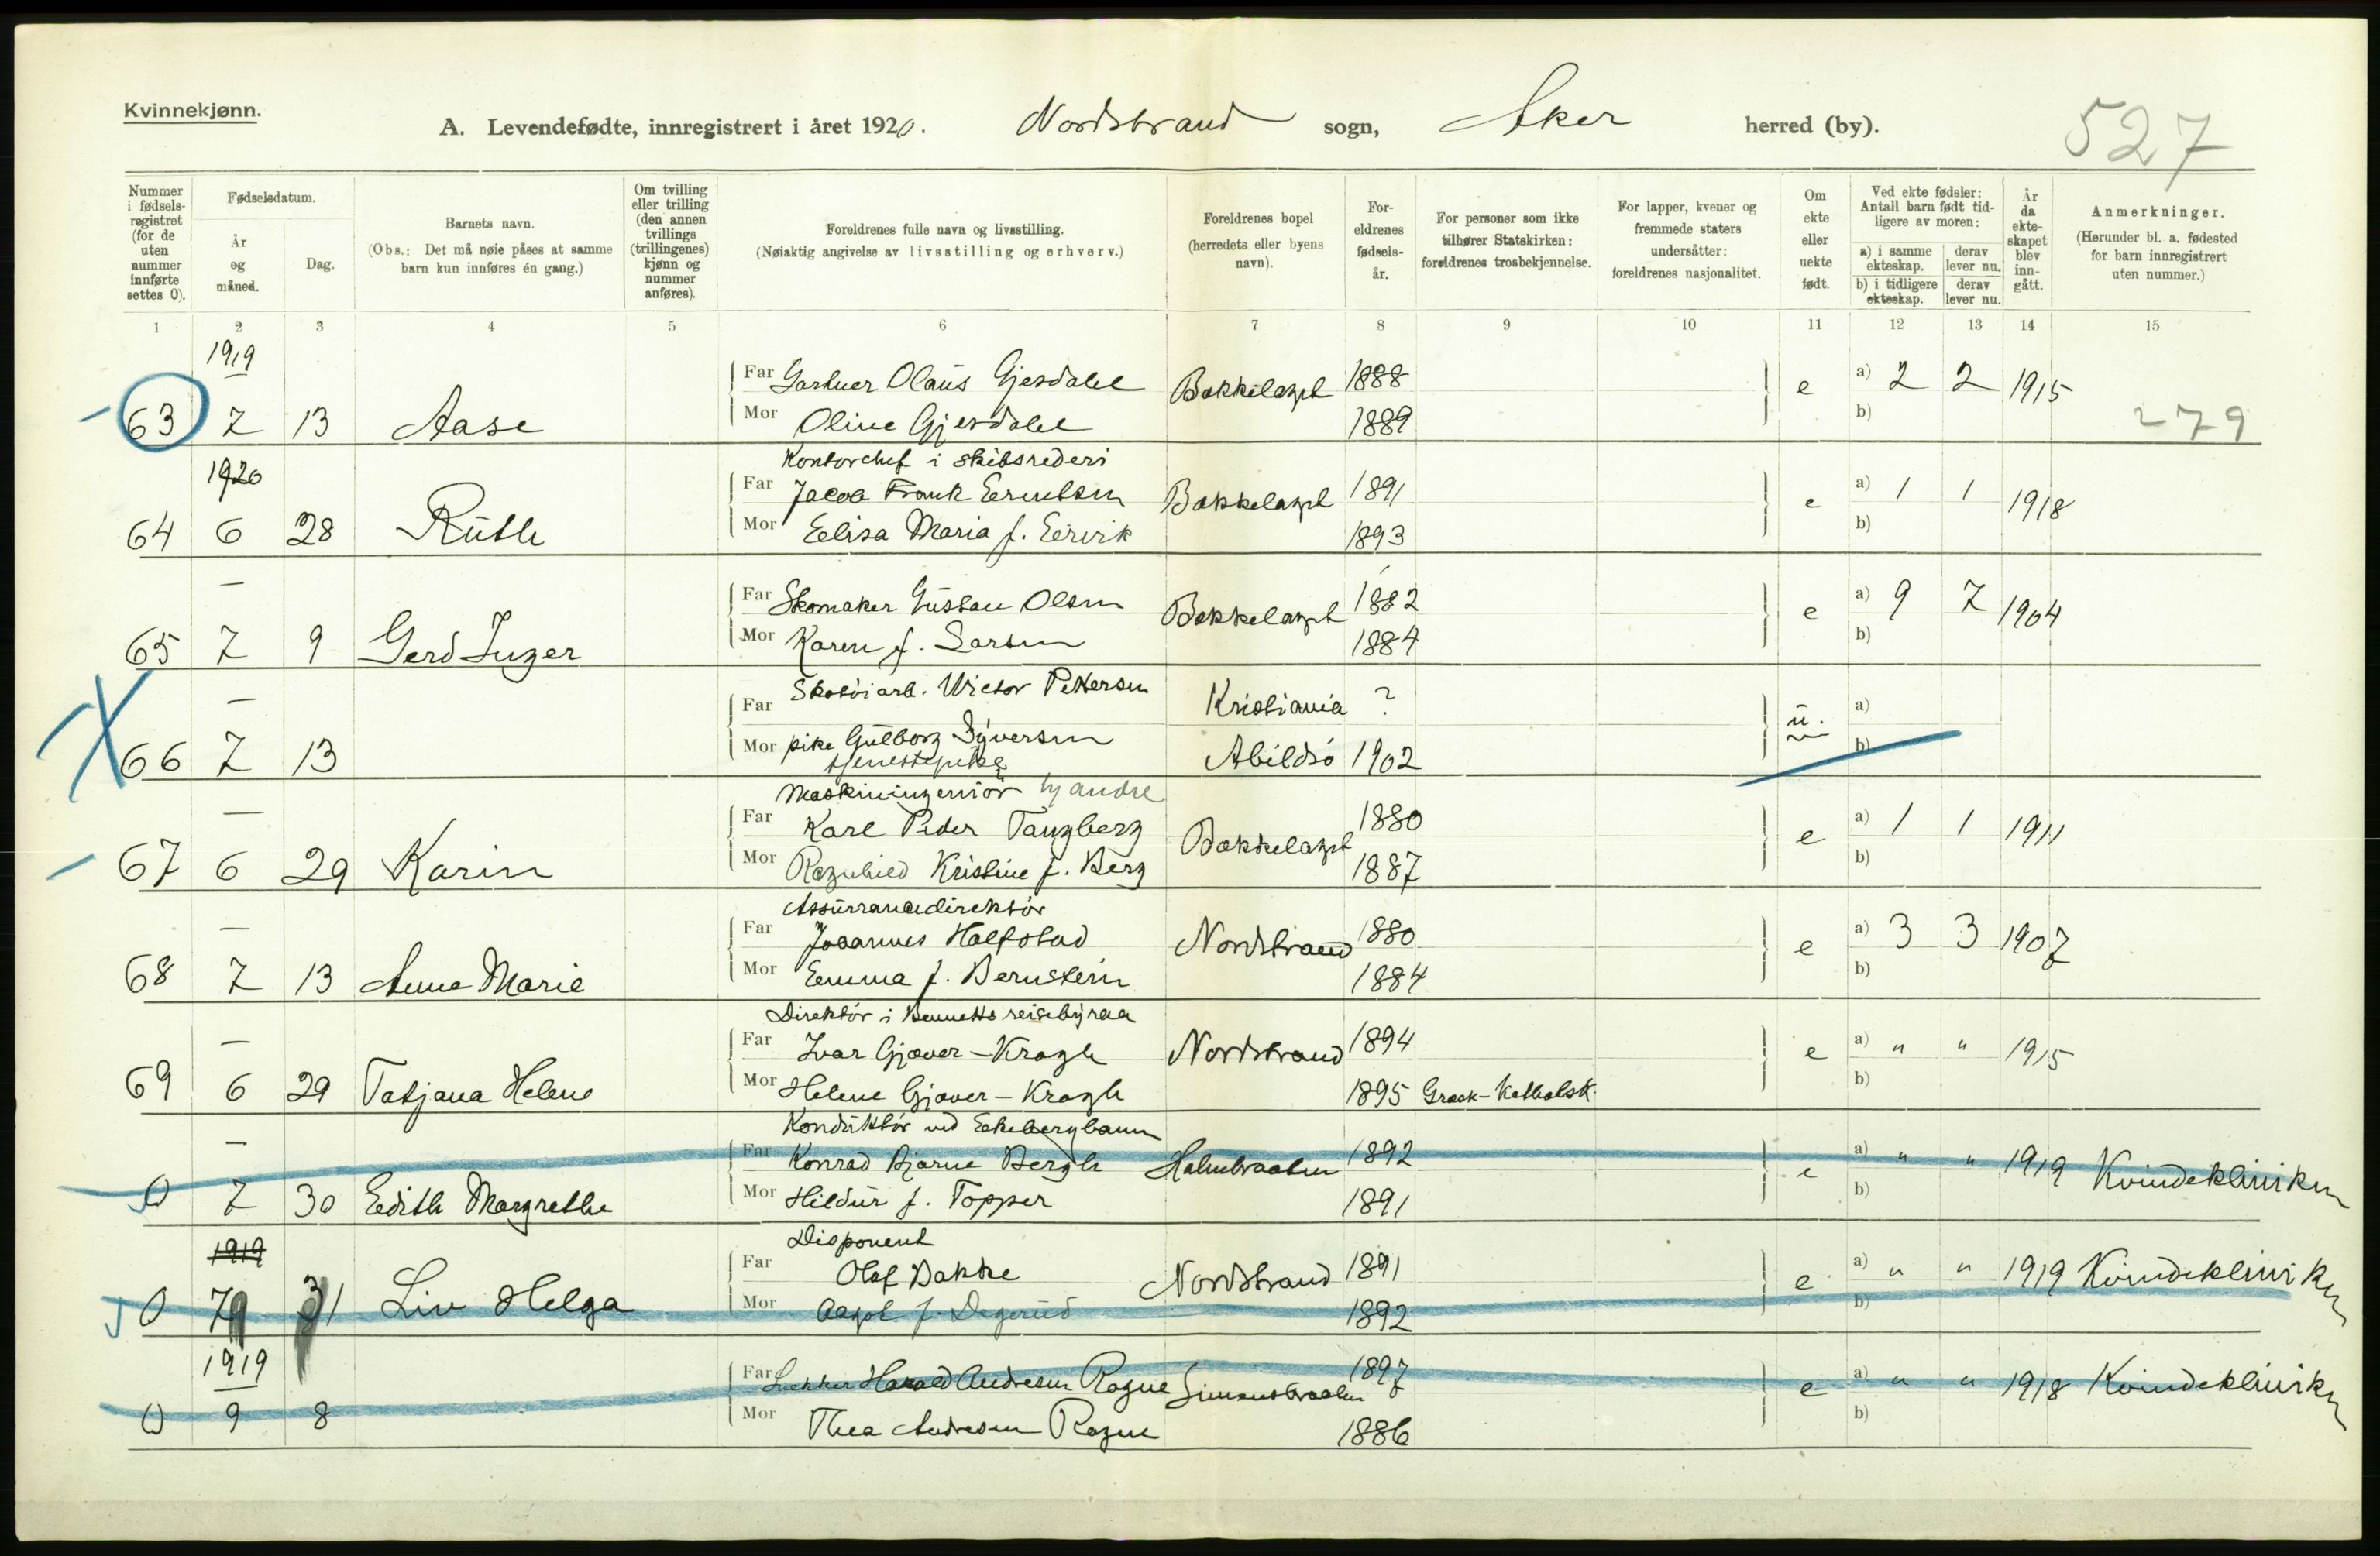 Kvinnekjønn.
A. Levendefødte, innregistrert i året 1920. Nordstrand sogn, Aker herred (by).
527
Nummer i fødsels-registret (for de uten nummer innførte settes 0).
Fødselsdatum.
År og måned.
Dag.
Barnets navn.
(Obs.: Det må nøie påses at samme barn kun innføres én gang.)
Om tvilling eller trilling (den annen tvillings (trillingenes) kjønn og nummer anføres).
Foreldrenes fulle navn og livsstilling.
(Nøiaktig angivelse av livsstilling og erhverv.)
Foreldrenes bopel (herredets eller byens navn).
For-eldrenes fødsels-år.
For personer som ikke tilhører Statskirken: foreldrenes trosbekjennelse.
For lapper, kvener og fremmede staters undersåtter: foreldrenes nasjonalitet.
Om ekte eller uekte født.
Ved ekte fødsler: Antall barn født tid-ligere av moren:
a) i samme ekteskap. derav lever nu.
b) i tidligere ekteskap. derav lever nu.
År da ekte-skapet blev inn-gått.
Anmerkninger.
(Herunder bl. a. fødested for barn innregistrert uten nummer.)
1 2 3 4 5 6 7 8 9 10 11 12 13 14 15
1919
Far Gartner Olaus Gjesdahl Bækkelaget 1888 e a) 2 2 1915
63 7 13 Aase
Mor Oline Gjesdahl 1889 b)
279
1920
Kontorchef i skibsrederi
Far Jacob Frank Berentsen Bækkelaget 1891 e a) 1 1 1918
64 6 28 Ruth
Mor Elisa Maria f. Eirvik 1893 b)
—
Far Skomaker Gustav Olsen Bækkelaget 1882 e a) 9 7 1904
65 7 9 Gerd Inger
Mor Karen f. Larsen 1884 b)
—
Far Skotøiarb. Victor Pettersen Kristiania ? u. a)
66 7 13
Mor pike Gulborg Syversen Abildsø 1902 b)
tjenestepike hj andre
—
Maskiningeniør
Far Karl Peder Tangberg Bækkelaget 1880 e a) 1 1 1911
67 6 29 Karin
Mor Ragnhild Kristine f. Berg 1887 b)
—
Assurancedirektør
Far Johannes Halfstad Nordstrand 1880 e a) 3 3 1907
68 7 13 Anna Marie
Mor Emma f. Bernstein 1884 b)
—
Direktør i Bennetts reisebyraa
Far Ivar Gjæver-Krogh Nordstrand 1894 e a) " " 1915
69 6 29 Tatjana Helene
Mor Helene Gjæver-Krogh 1895 Græsk-Katholsk. b)
—
Konduktør ved Ekebergbanen
Far Konrad Bjarne Bergh Holmbraaten 1892 e a) " " 1919 Kvindeklinikken
0 7 30 Edith Margrethe
Mor Hildur f. Topper 1891 b)
1919
Disponent
Far Olaf Bakke Nordstrand 1891 e a) " " 1919 Kvindeklinikken
0 79 31 Liv Helga
Mor Aagot f. Degerud 1892 b)
1919
Far Snekker Harald Andresen Rogne Simensbraaten 1897 e a) " " 1918 Kvindeklinikken
0 9 8
Mor Thea Andresen Rogne 1886 b)